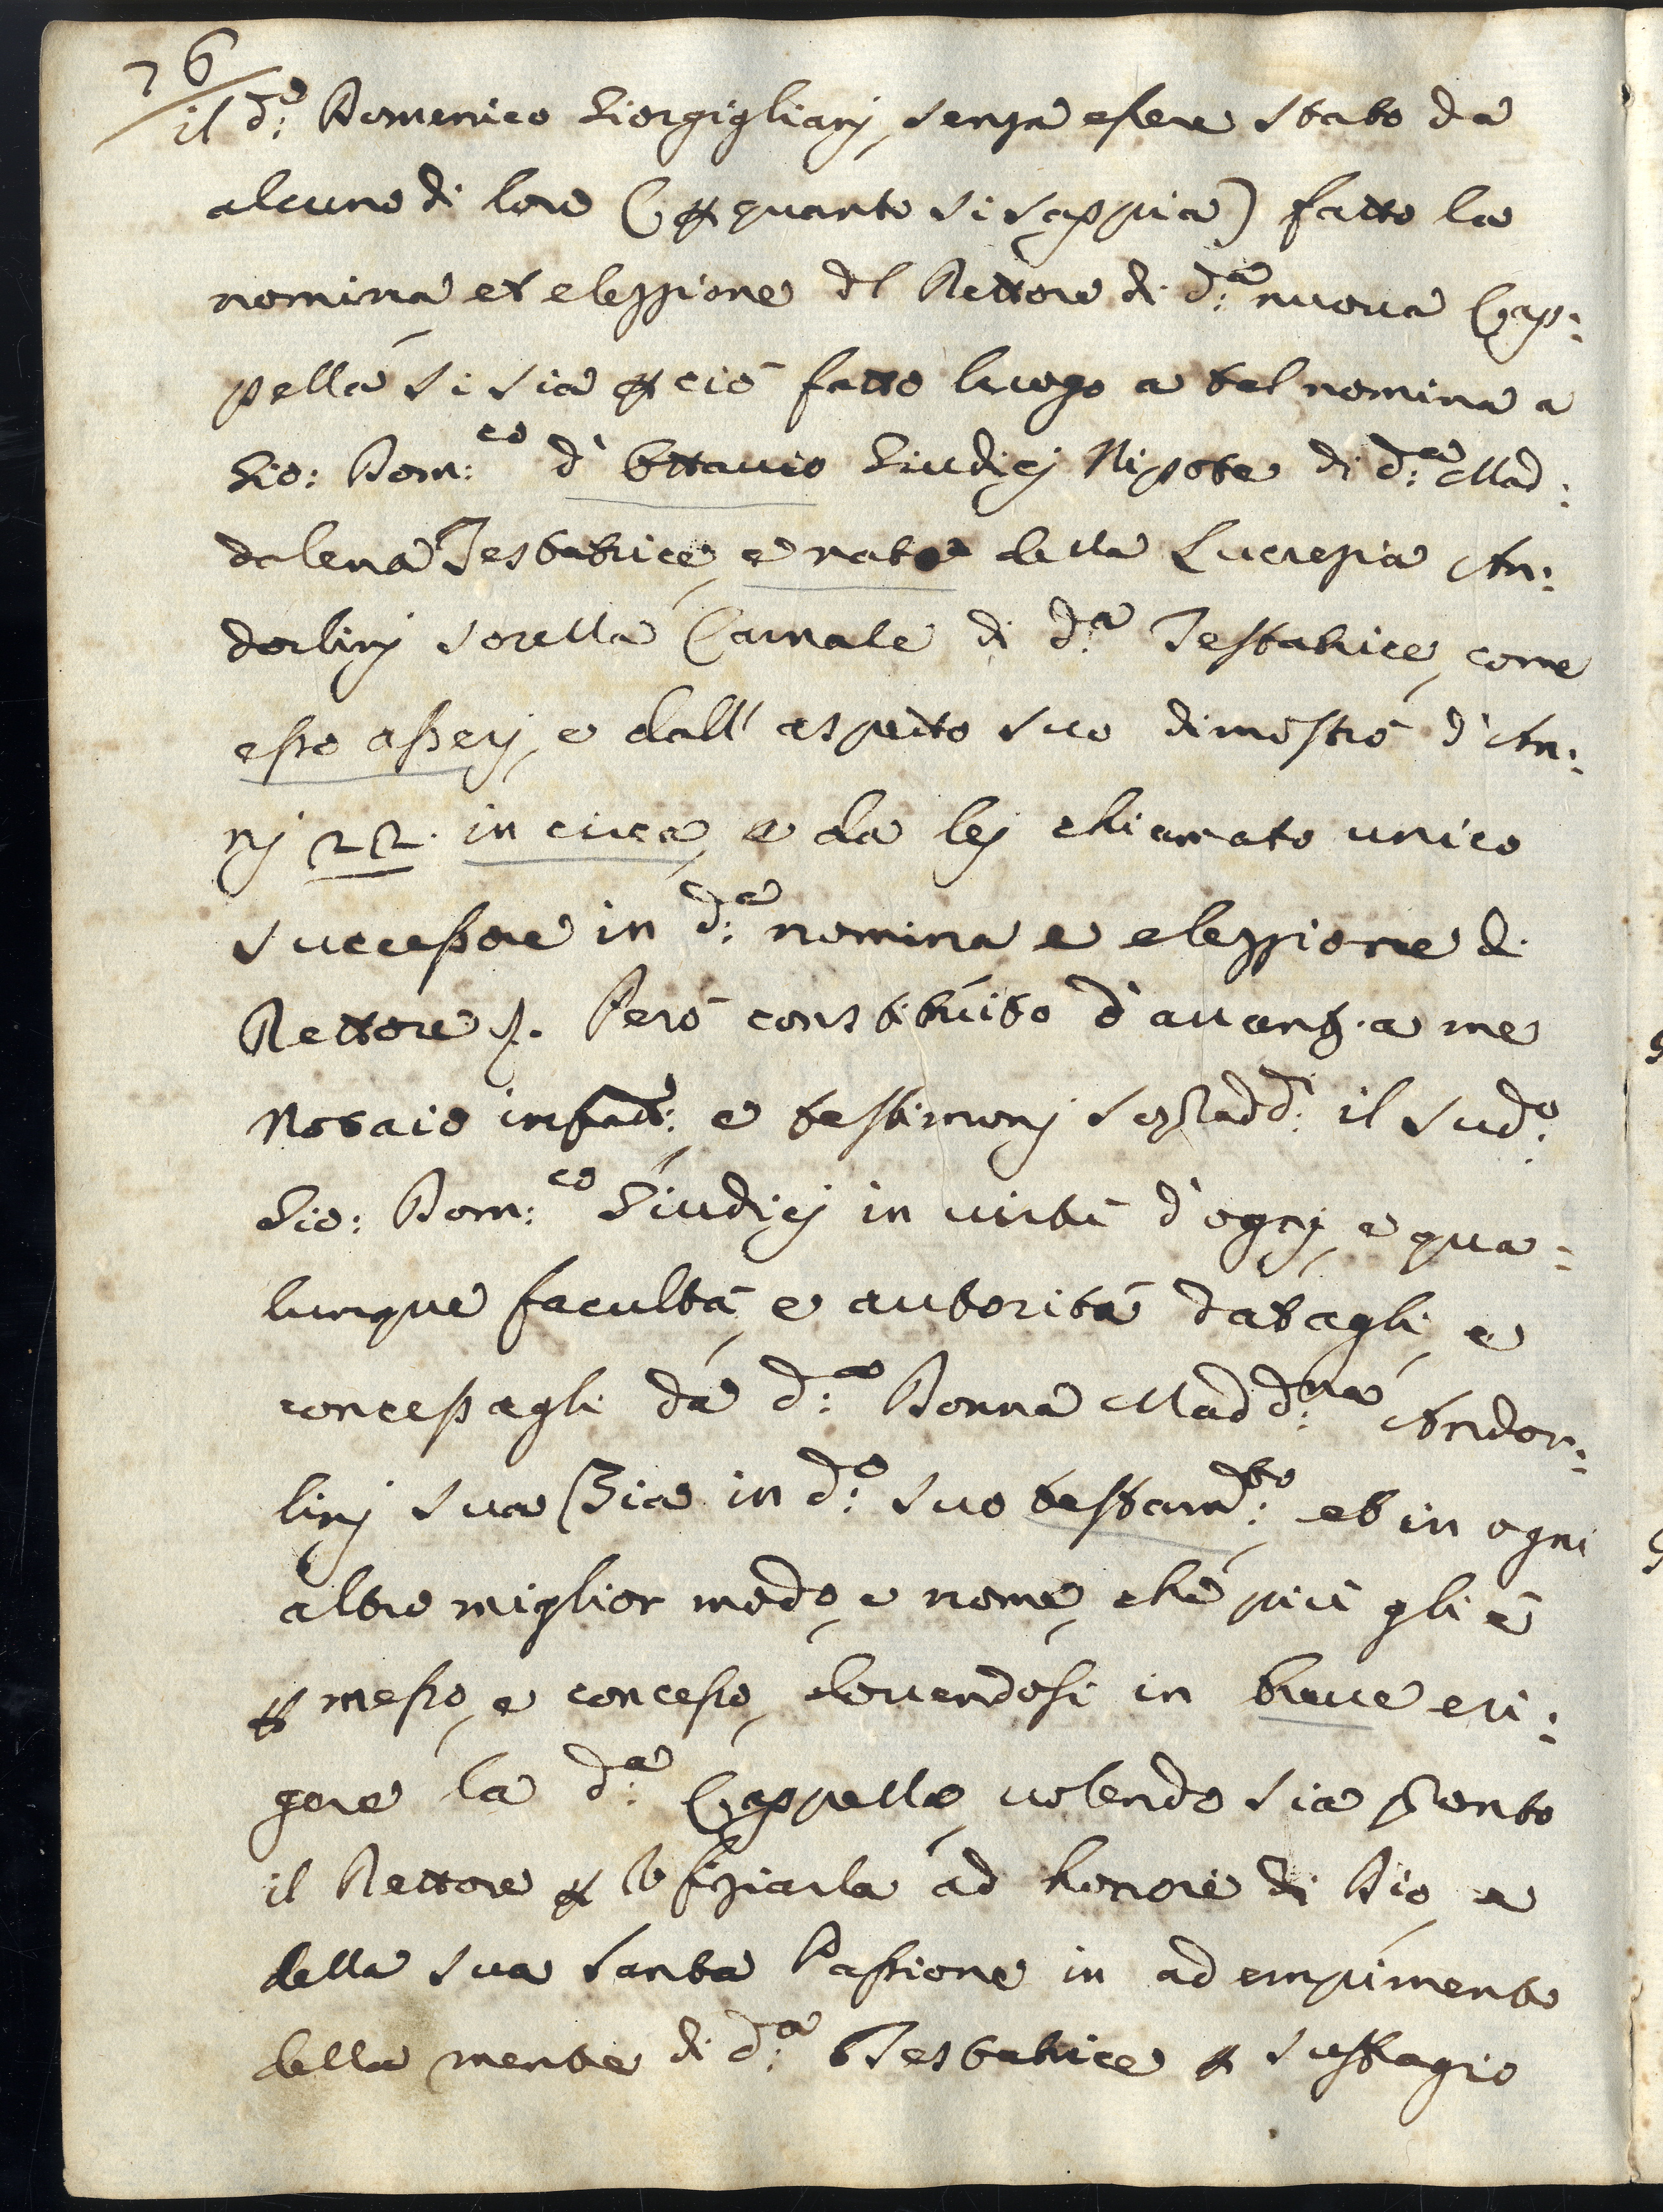 76
il d:º Domenico Giorgigliani, senza essere stato da
alcuno di loro (p quanto si sappia) fatto la
nomina et elezzione dl Rettore di d:ª nuova Cap:
pella si sia p ciò fatto luogo a tal nomina a
Gio: Dom:co d'Ottavio Giudicj Nipote di d:ª Mad:
dalena Testatrice, e nato della Lucrezia An:
dorlinj sorella Carnale di d:ª Testatrice, come
esso asserj, e dall'aspetto suo dimostrò d'An:
nj 22. in circa, e da lej chiamato unico
successore in d:ª nomina e elezzione di
Rettore p. Però constituito d'avanti a me
Notaio infratt:º, e testimonj sopradd:i il sud:º
Gio: Dom:co Giudicj in virtù d'ognj, e qua:
lunque facultà, e autorità datagli, e
concessagli da d:ª Donna Madd:na Andor:
linj sua Zia in d:º suo testam:to, et in ogni
altro miglior modo, e nome, che più gli è
p messo, e concesso, dovendosi in breve eri:
gere la d:ª Cappella, volendo sia pronto
il Rettore p Ofiziarla ad honore di Dio, e
della sua Santa Passione in adempimento
della mente di d:ª Testatrice p suffragio